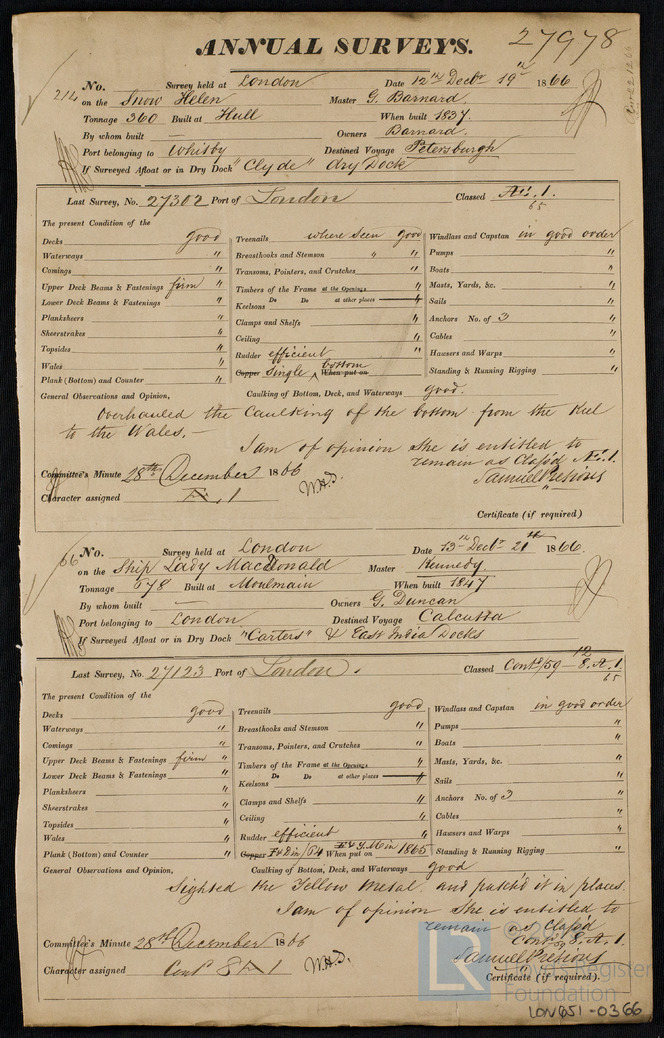 ANNUAL SURVEYS. 27978
214 No. Survey held at London Date 12th Decbr 19th 1866.
on the Snow Helen Master G. Barnard.
Tonnage 360 Built at Hull When built 1837.
By whom built — Owners Barnard.
Port belonging to Whitby Destined Voyage Petersburgh
If Surveyed Afloat or in Dry Dock "Clyde" dry Dock
Last Survey, No. 27302 Port of London Classed Æ. 1.
65
The present Condition of the
Decks good
Waterways "
Comings "
Upper Deck Beams & Fastenings firm "
Lower Deck Beams & Fastenings "
Planksheers "
Sheerstrakes "
Topsides "
Wales "
Plank (Bottom) and Counter "
Treenails where seen good
Breasthooks and Stemson " "
Transoms, Pointers, and Crutches "
Timbers of the Frame at the Openings "
Do Do at other places "
Keelsons "
Clamps and Shelfs "
Ceiling "
Rudder efficient "
Copper Single bottom When put on
Windlass and Capstan in good order
Pumps "
Boats "
Masts, Yards, &c. "
Sails "
Anchors No. of 3 "
Cables "
Hawsers and Warps "
Standing & Running Rigging "
General Observations and Opinion, Caulking of Bottom, Deck, and Waterways good.
Overhauled the Caulking of the bottom from the Keel
to the Wales. —
I am of opinion She is entitled to
remain as Class'd Æ. 1.
Committee's Minute 28th December 1866
Samuel Pretious
Character assigned Æ. 1 W.H.S.
Certificate (if required)
66 No. Survey held at London Date 13th Decbr 21st 1866.
on the Ship Lady MacDonald Master Kennedy
Tonnage 678 Built at Moulmain When built 1847
By whom built — Owners G. Duncan
Port belonging to London Destined Voyage Calcutta
If Surveyed Afloat or in Dry Dock "Carters" & East India Docks
Last Survey, No. 27123 Port of London. Classed Contd/59 — 12 8. A. 1.
65
The present Condition of the
Decks good
Waterways "
Comings "
Upper Deck Beams & Fastenings firm "
Lower Deck Beams & Fastenings "
Planksheers "
Sheerstrakes "
Topsides "
Wales "
Plank (Bottom) and Counter "
Treenails good
Breasthooks and Stemson "
Transoms, Pointers, and Crutches "
Timbers of the Frame at the Openings "
Do Do at other places "
Keelsons "
Clamps and Shelfs "
Ceiling "
Rudder efficient "
Copper /64 When put on F & Y. M in 1865
Windlass and Capstan in good order
Pumps "
Boats "
Masts, Yards, &c. "
Sails "
Anchors No. of 3 "
Cables "
Hawsers and Warps "
Standing & Running Rigging "
General Observations and Opinion, Caulking of Bottom, Deck, and Waterways good
Sighted the Yellow Metal. and patch'd it in places.
I am of opinion She is entitled to
remain as Class'd
Contd 8. A. 1.
Committee's Minute 28th December 1866
Samuel Pretious
Character assigned Contd 8 A 1 W.H.S.
Certificate (if required).
LR
Lloyd's Register
Foundation
LON651-0366